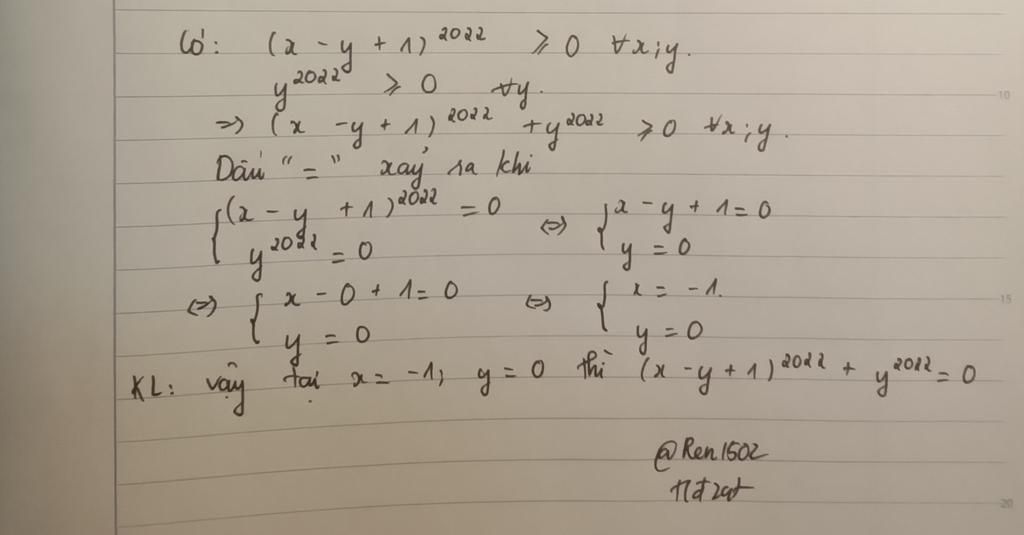 Có: (x - y + 1)^2022 ⩾ 0 ∀x;y.
y^2022 ⩾ 0 ∀y.
=> (x - y + 1)^2022 + y^2022 ⩾ 0 ∀x;y.
Dấu "=" xảy ra khi
{ (x - y + 1)^2022 = 0 <=> { x - y + 1 = 0
y^2022 = 0 y = 0
<=> { x - 0 + 1 = 0 <=> { x = -1.
y = 0 y = 0
KL: vậy tại x = -1, y = 0 thì (x - y + 1)^2022 + y^2022 = 0
@Ren1502
10
15
20